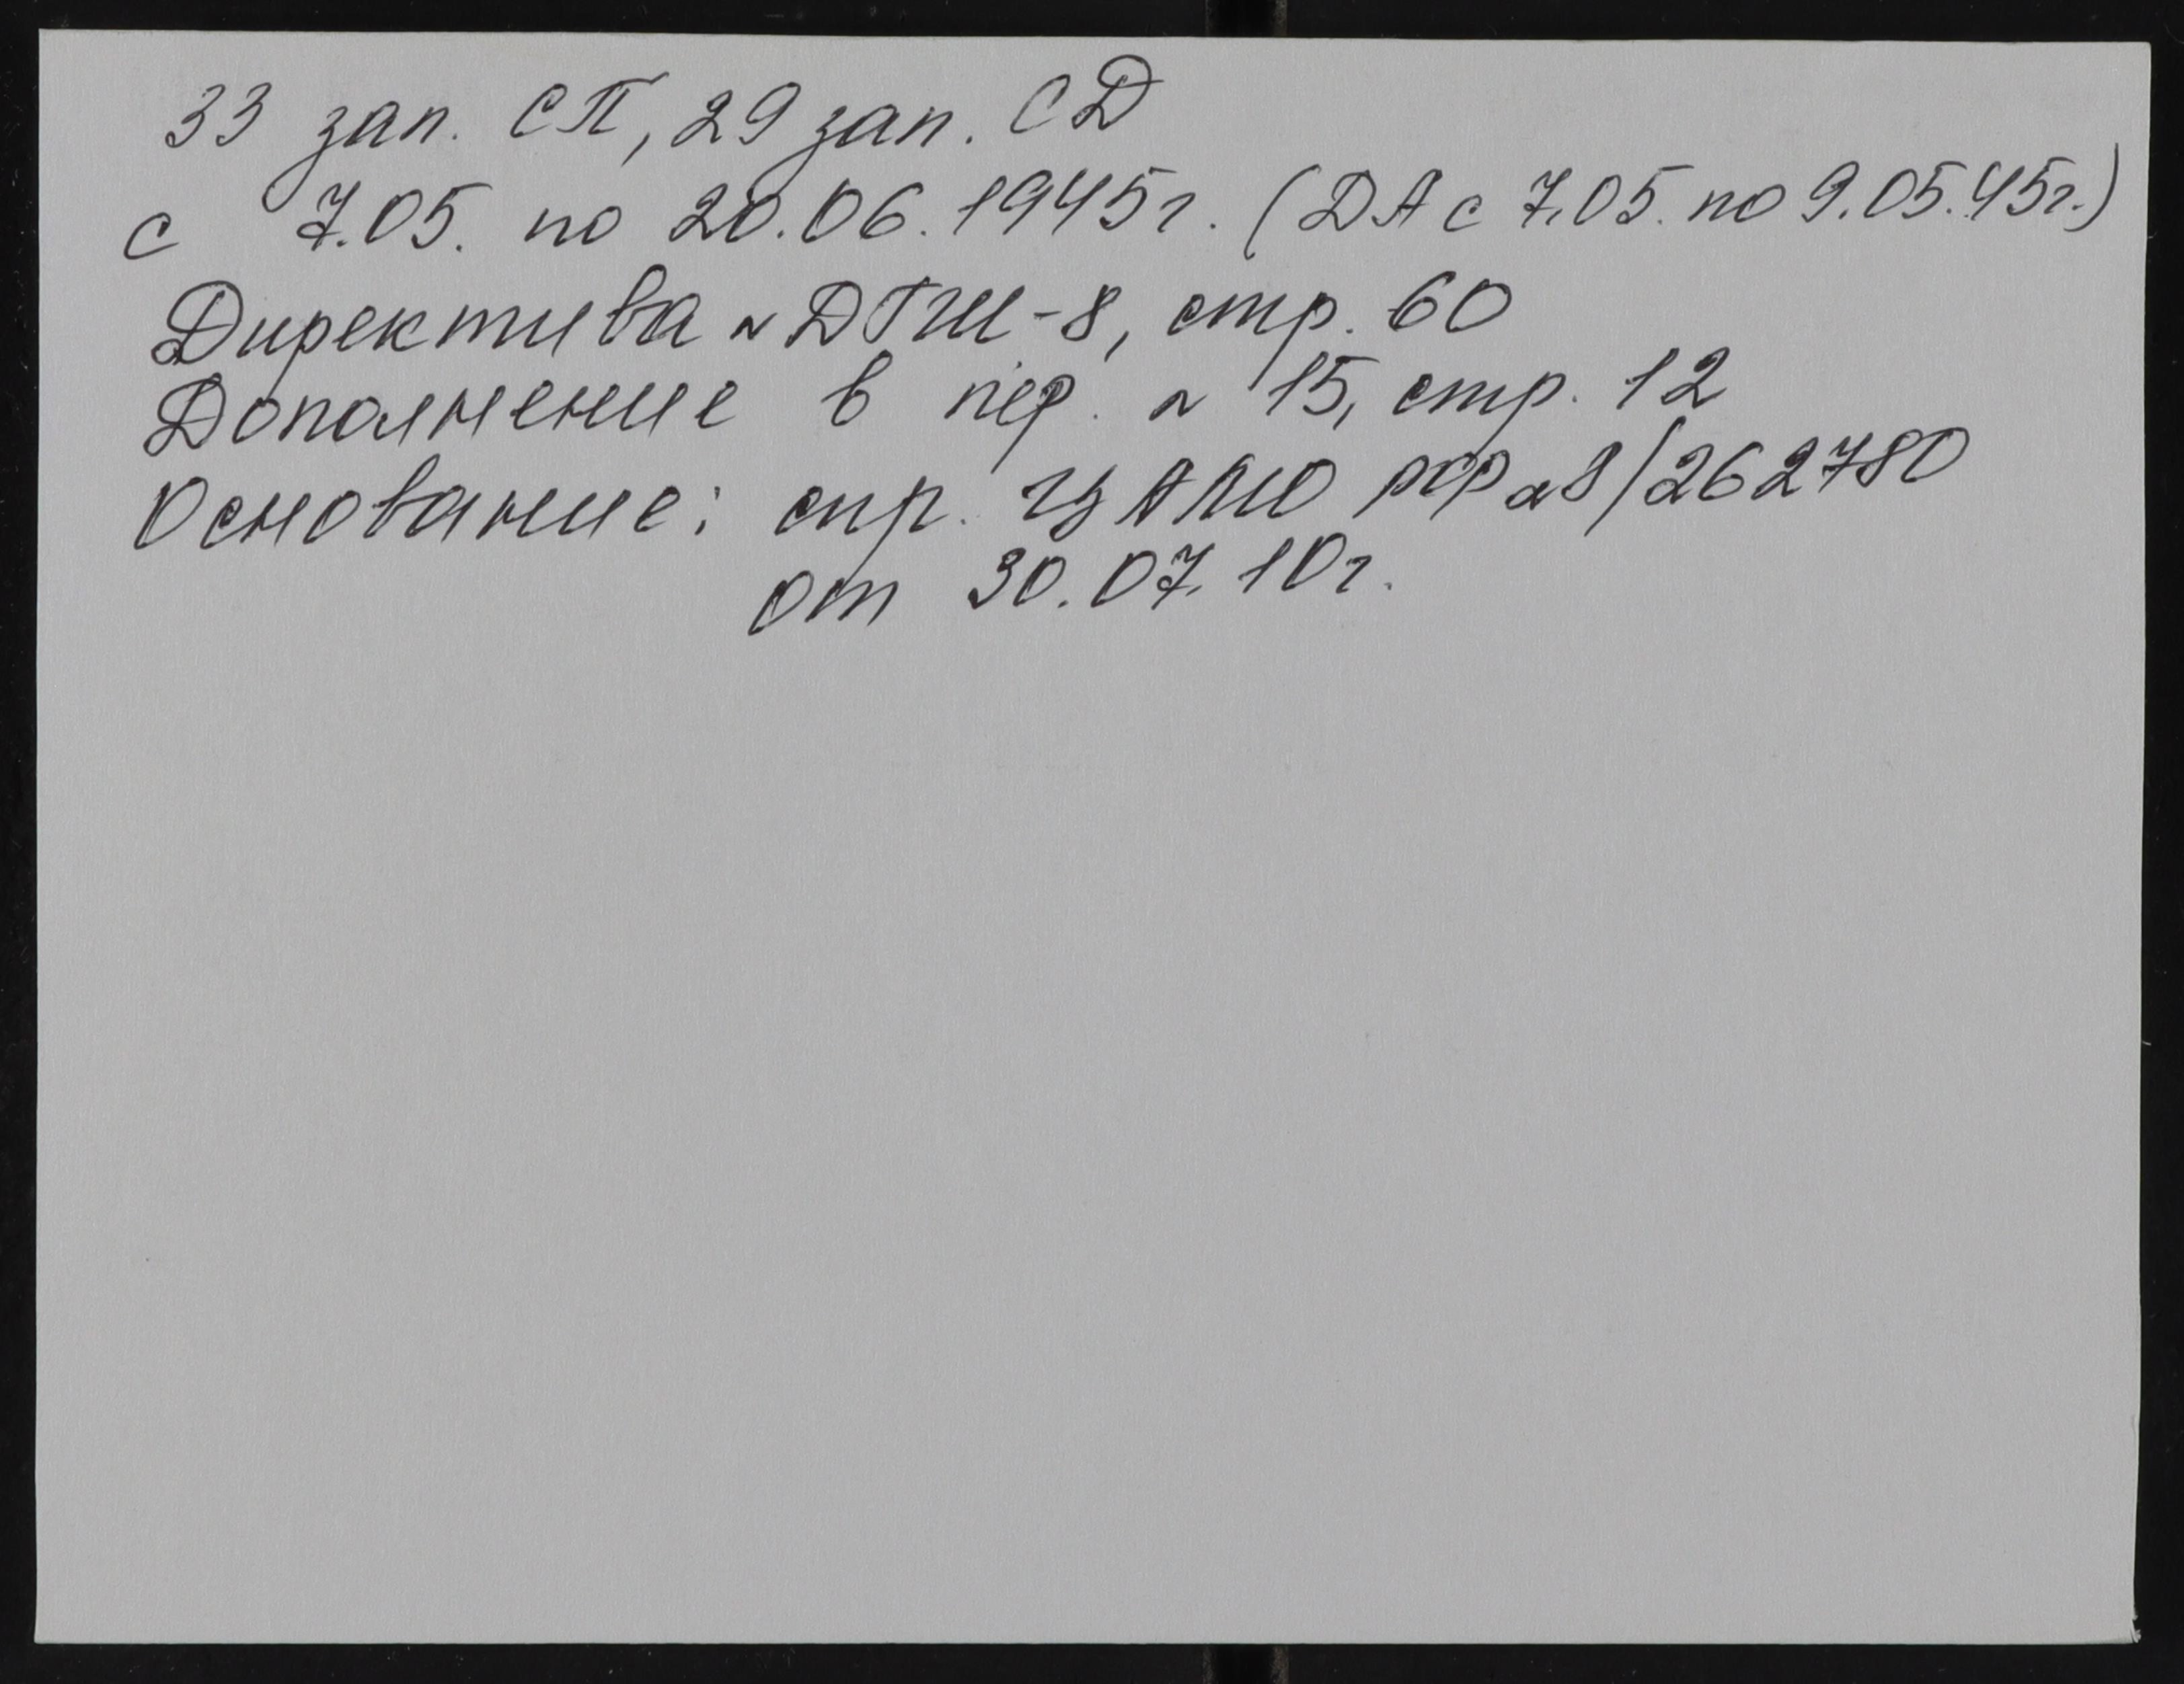 33 зап. СП, 29 зап. СД
с 7.05. по 20.06.1945г. (ДА с 7.05. по 9.05.45г.)
Директива № ДГШ-8, стр. 60
Дополнение в пер. № 15, стр. 12
Основание: спр. ЦАМО РФ №8/262780
от 30.07.10г.